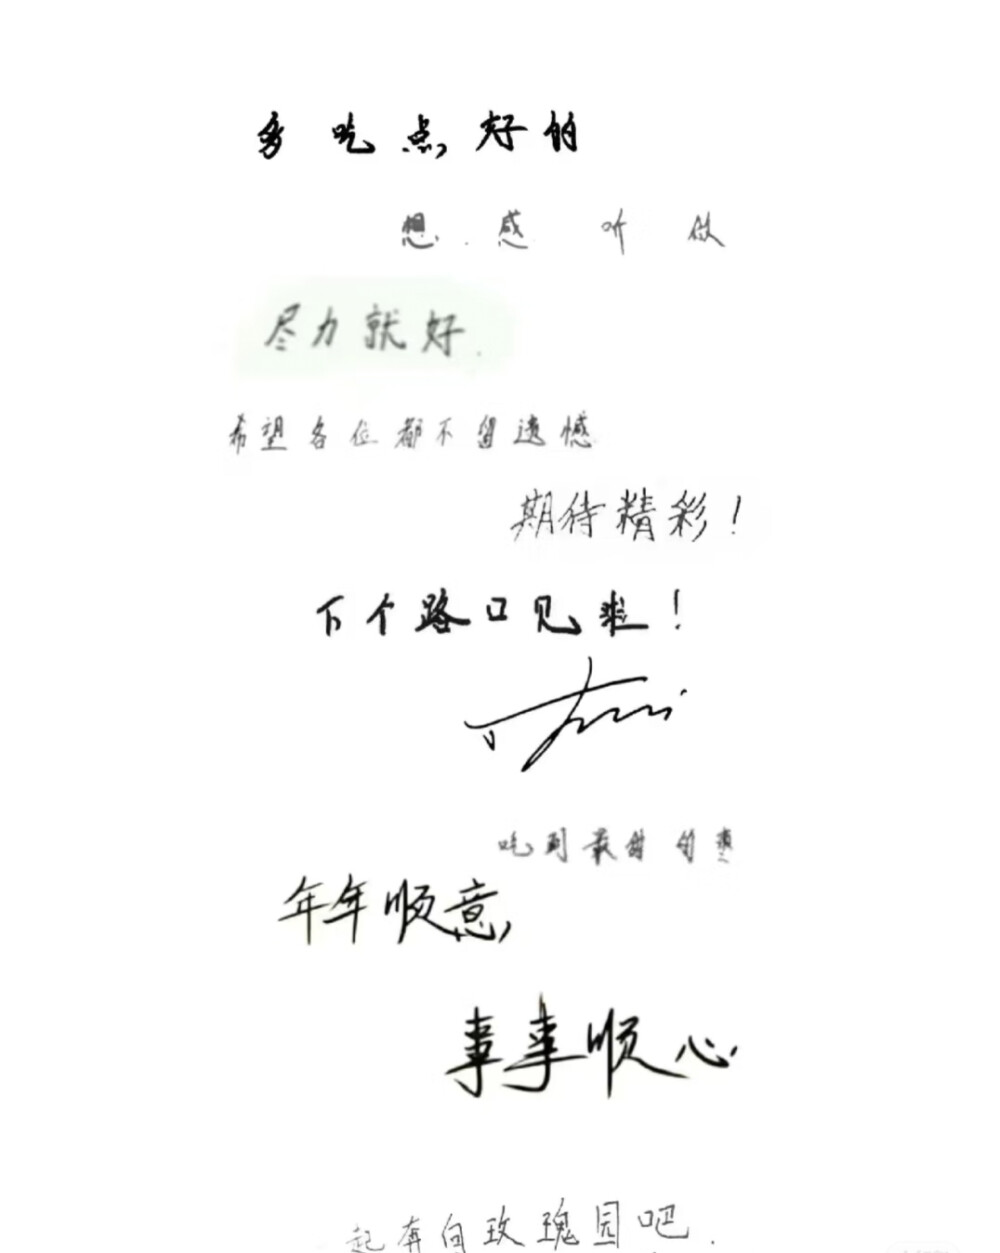 多吃点好的
想.感 听 做
尽力就好.
希望各位都不留遗憾
期待精彩!
下个路口见啦!
吃到最甜的枣
年年顺意,
事事顺心
起奔向玫瑰园吧.